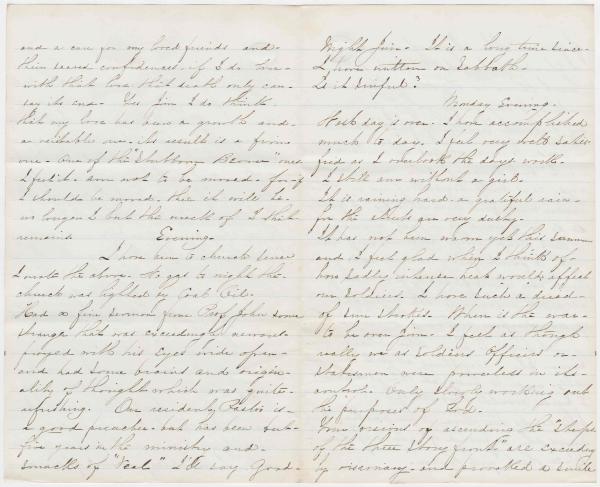 and a care for my loved friends and
their sacred confidences. if I do love
with that love that death only can
say its end. Yes Jim I do think
that my love has been a growth and
a reliable one. Its result is a firm
one. One of the "Stubborn" ones
I feel it. am not to be moved. for if
I should be moved. then it will be
no longer I but the wreck of I that
remains
Evening.
I have been to church since
I wrote the above. No gas to night the
church was lighted by Coal Oil.
Had a fine sermon from Prof John some
strange that was exceedingly nervous
prayed with his eyes wide open
and had some brains and origin
ality of thought which was quite
refreshing. Our resident Pastor is
a good preacher. but has been but
five years in the ministry and
smacks of "Veal" I'll say Good
Night Jim. It is a long time since
I have written on Sabbath.
Is it sinful?
Monday Evening.
Wash day is over. I have accomplished
much to day. I feel very well satis
fied as I overlook the days work.
I still am without a girl.
It is raining hard. a grateful rain
for the streets are very dusty.
It has not been warm yet this summer
and I feel glad when I think of
how sadly intense heat would affect
our soldiers. I have such a dread
of sun strokes. When is the war
to be over Jim. I feel as though
really we as Soldiers Officers or
Statesmen were powerless in its
control. Only slowly working out
the purposes of God.
Your visions of ascending the "steps
of the three Story front" are exceeding
ly visionary. and provoked a smile